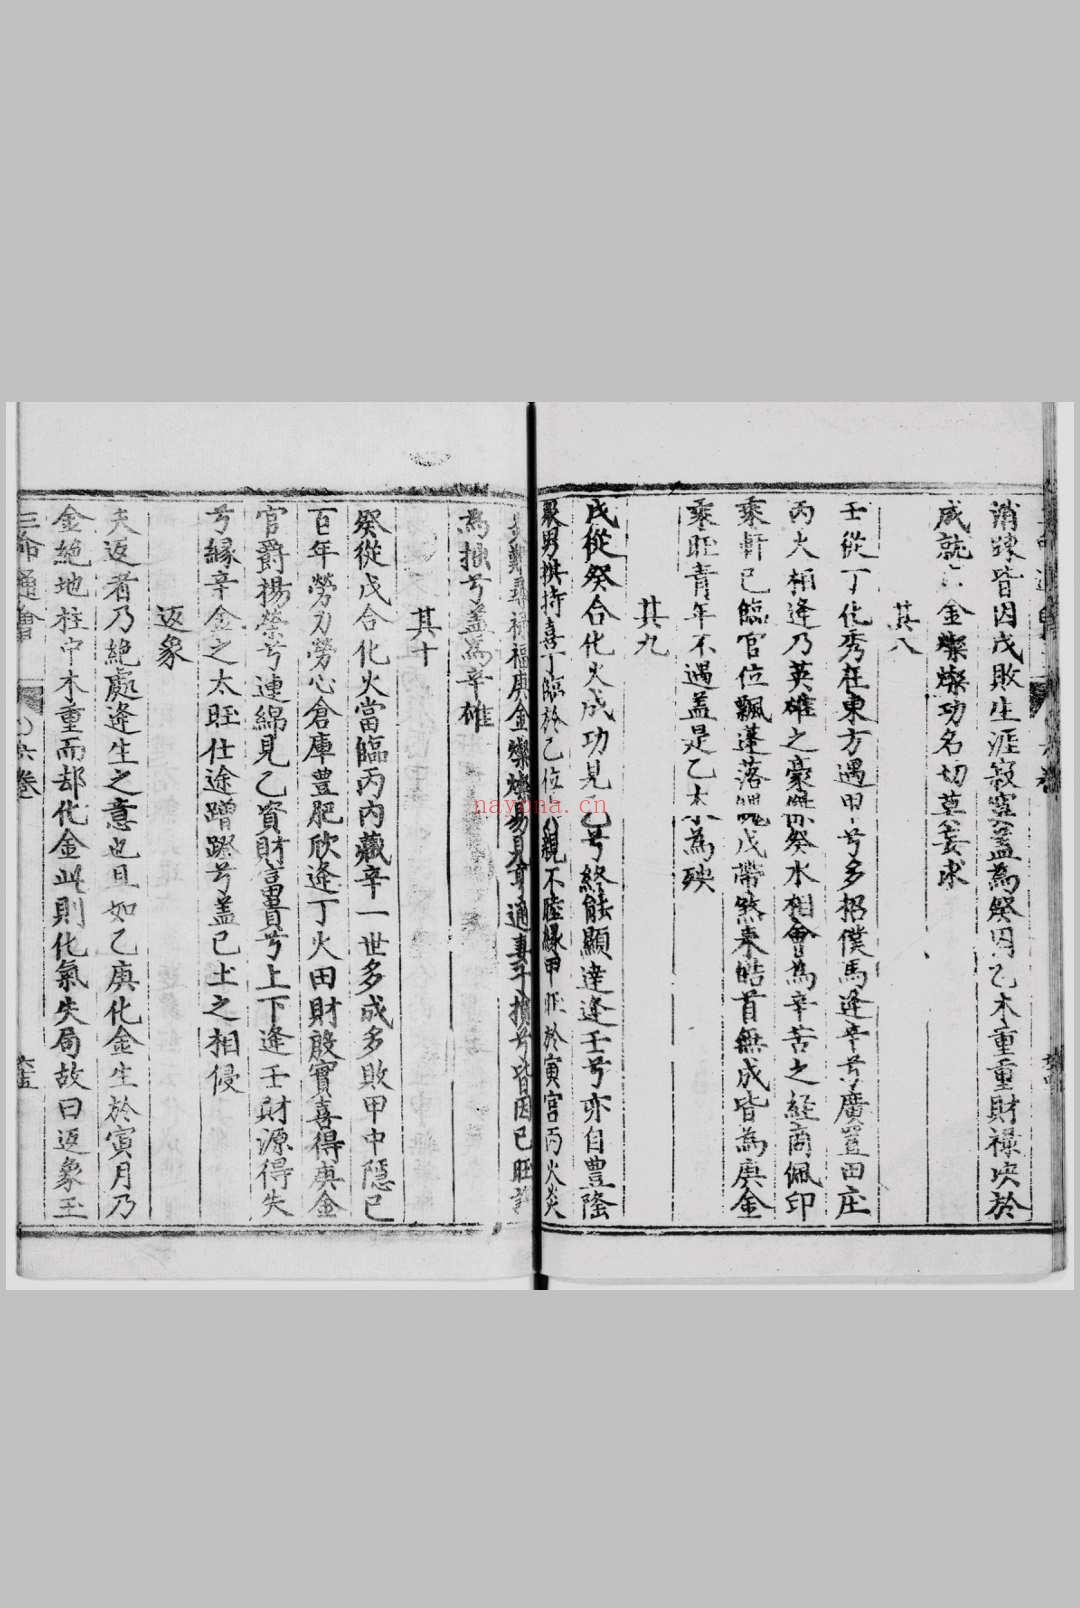 消踈皆因戊敗生涯寂寞盖為癸因乙木重重財祿決於
成就 金燦燦功名切莫妄求
其八
壬從丁化秀在東方遇甲兮多招僕馬逢辛兮廣置田庄
丙火相逢乃英雄之豪 癸水相會為辛苦之経商佩印
乘軒已臨官位飄蓬落 戊帶煞来皓首無成皆為庚金
乘旺青年不遇盖是乙木 為殃
其九
戊從癸合化火成功見乙兮終能顯達逢壬兮亦自豊隆
男拱持喜丁臨於乙位 親不睦縁甲旺於寅宮丙火炎
難尋福庚金燦燦易見亨通妻子 兮皆因已旺
為拙兮盖為辛雄
其十
癸從戊合化火當臨丙内藏辛一世多成多敗甲中隱已
百年勞力勞心倉庫豊肥欣逢丁火田財殷實喜得庚金
官爵揚榮兮連綿見乙資財富貴兮上下逢壬財源得失
兮縁辛金之太旺仕途蹭蹬兮盖已土之相侵
返象
夫返者乃絶處逢生之意也且如乙庚化金生於寅月乃
金絶地柱中木重而却化金此則化氣失局故曰返象玉
三命通會
六卷
nayona.cn